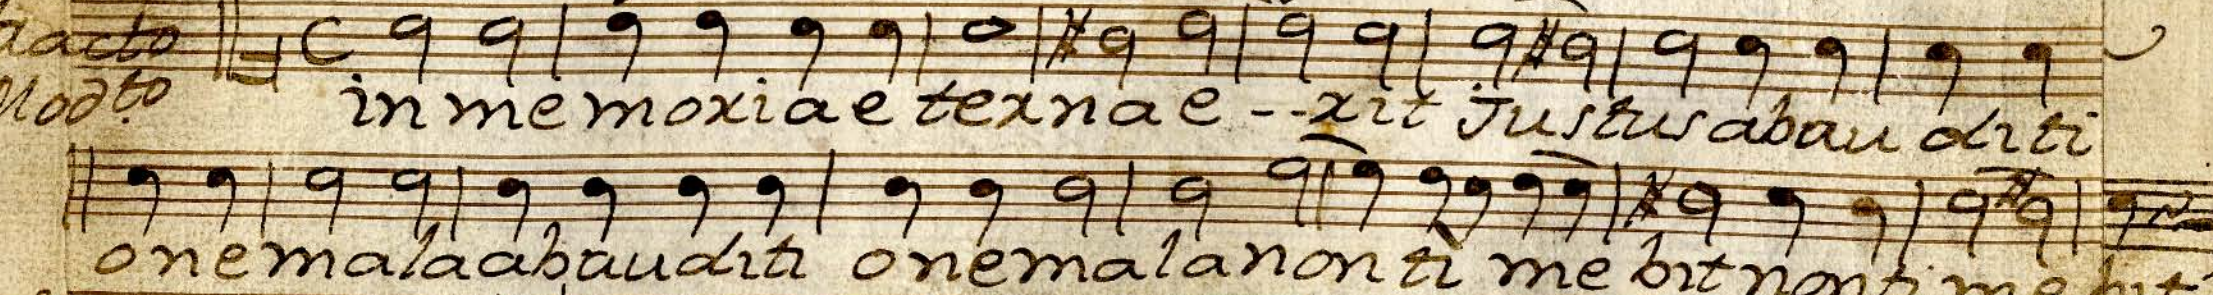 Modto
in memoria eterna e--rit Justus ab au diti
one mala ab auditi one mala non ti me bit non ti me bit